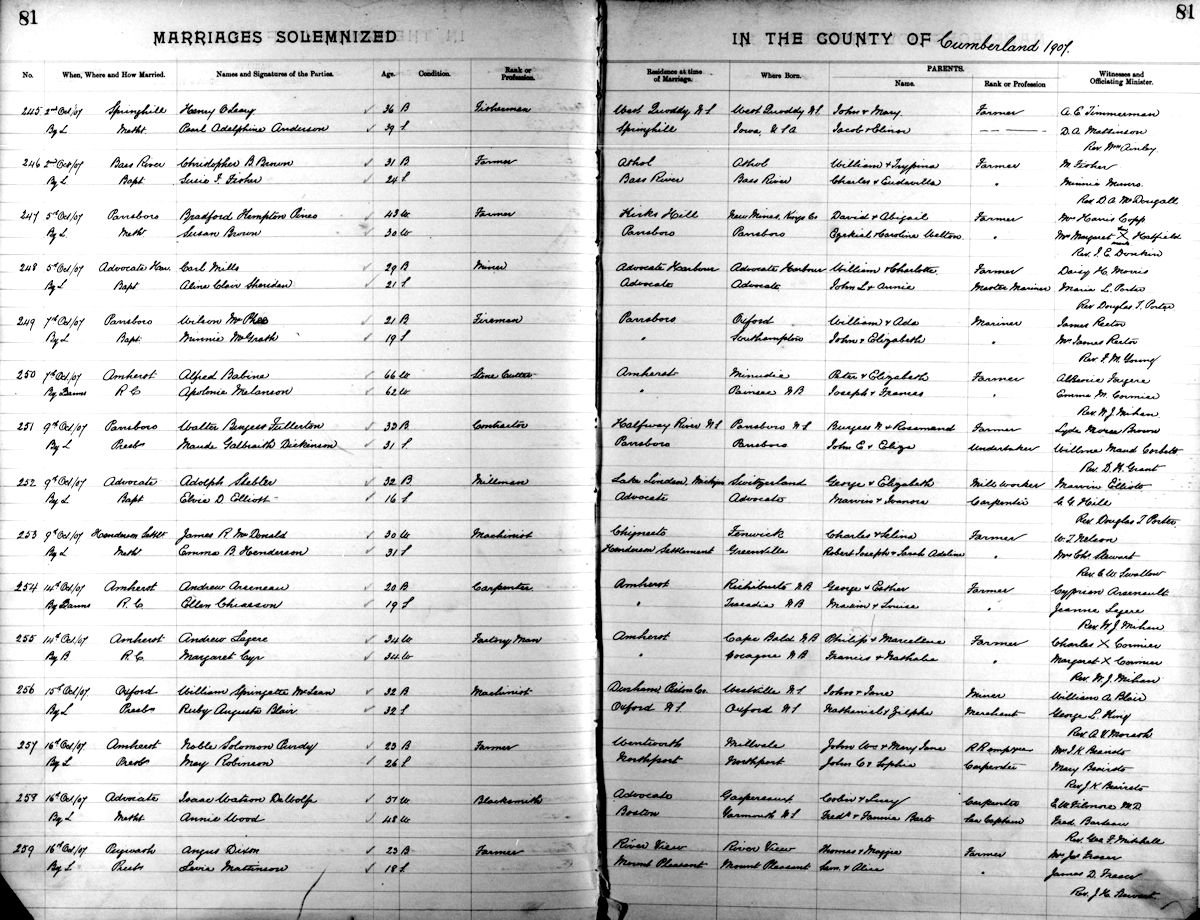 81 81
MARRIAGES SOLEMNIZED IN THE COUNTY OF Cumberland 1907.
No. When, Where and How Married. Names and Signatures of the Parties. Age. Condition. Rank or Profession. Residence at time of Marriage. Where Born. PARENTS. Name. Rank or Profession Witnesses and Officiating Minister.
245 2nd Oct/07 Springhill Henry Cleary 36 B Fisherman West Quoddy N S West Quoddy N.S. John & Mary Farmer A E Timmerman
By L Metht. Pearl Adelphine Anderson 39 S Springhill Iowa, U.S.A Jacob & Elinor D. A. Mattinson
Rev Wm Ainley
246 2nd Oct/07 Bass River Christopher B Brown 31 B Farmer Athol Athol William & Tryprina Farmer M Fisher
By L Bapt Susie F. Fisher 24 S Bass River Bass River Charles & Eudavilla " Minnie Munro
Rev D. A. McDougall
247 5th Oct/07 Parrsboro Bradford Hempton Pineo 43 W Farmer Kirks Hill New Minas, Kings Co David & Abigail Farmer Mrs Havis Copp
By L Metht Susan Brown 30 W Parrsboro Parrsboro Ezekiel & Caroline Welton " Mrs Margaret her X mark Hatfield
Rev. J. E. Donkin
248 5th Oct/07 Advocate Har. Carl Mills 29 B Miner Advocate Harbour Advocate Harbour William & Charlotte Farmer Daisy H. Morris
By L Bapt Aline Clair Sheridan 21 S Advocate Advocate John L & Annie Master Mariner Maria L. Porter
Rev Douglas T. Porter
249 7th Oct/07 Parrsboro Wilson McPhee 21 B Fireman Parrsboro Oxford William & Ada Mariner James Rector
By L Bapt. Minnie McGrath 19 S " Southampton John & Elizabeth " Mrs James Rector
Rev. F. M. Young
250 7th Oct/07 Amherst Alfred Babine 66 W Stone Cutter Amherst Minudie Peter & Elizabeth Farmer
By Banns R. C Apolonie Melanson 62 W " Painsec N B Joseph & Frances " Emma M. Cormier
Rev. W. J. Mihan
251 9th Oct/07 Parrsboro Walter Burgess Fullerton 33 B Contractor Halfway River N S Parrsboro N S Burgess N & Rosamond Farmer Lyda Morse Brown
By L Presb Maude Galbraith Dickinson 31 S Parrsboro Parrsboro John E & Eliza Undertaker Willena Maud Corbett
Rev. D. H. Grant
252 9th Oct/07 Advocate Adolph Stebler 32 B Millman Lake Linden, Michigan Switzerland George & Elizabeth Mill Worker Marvin Elliott
By L Bapt Elvie D Elliott 16 S Advocate Advocate Marvin & Ivanora Carpenter C. G. Hill
Rev Douglas T Porter
253 9th Oct/07 Henderson Settlt James R McDonald 30 W Machinist Chignecto Fenwick Charles & Selina Farmer W. T. Nelson
By L Metht Emma B. Henderson 31 S Henderson Settlement Greenville Robert Joseph & Sarah Adeline " Mrs Chs. Stewart
Rev C W Swallow
254 14th Oct/07 Amherst Andrew Arseneau 20 B Carpenter Amherst Richibucto N B George & Esther Farmer Cyprian Arsenault
By Banns R. C Ellen Chiasson 19 S " Tracadie N B Maxim & Louise " Jeanne Legere
Rev. W. J. Mihan
255 14th Oct/07 Amherst Andrew Legere 34 W Factory Man Amherst Cape Bald N B Philip & Marcelline Farmer Charles X Cormier
By B R. C. Margaret Cyr 34 W " Cocagne N B Francis & Nathalie " Margaret X Cormier
Rev. W. J. Mihan
256 15th Oct/07 Oxford William Springette McLean 32 B Machinist Durham Pictou Co. Westville N S John & Jane Miner William A Blair
By L Presb Ruby Augusta Blair 32 S Oxford N S Oxford N S Nathaniel & Zilpha Merchant George L. King
Rev. A. V. Morash
257 16th Oct/07 Amherst Noble Solomon Purdy 23 B Farmer Wentworth Millvale John Wm & Mary Jane R R employee Mrs J. K Beairsto
By L Presb May Robinson 26 S Northport Northport John C & Sophia Carpenter Mary Beairsto
Rev J. K Beairsto
258 16th Oct/07 Advocate Isaac Watson DeWolfe 57 W Blacksmith Advocate Gaspereaux Cobin & Lucy Carpenter E. W Filmore M D
By L Metht Annie Wood 48 W Boston Yarmouth N S Fredk & Fannie Sea Captain Fred. Bardeau
Rev. Geo F. Mitchell
259 16th Oct/07 Pugwash Angus Dixon 23 B Farmer River View River View Thomas & Maggie Farmer Mrs Jas Fraser
By L Presb Levie Mattinson 18 S Mount Pleasant Mount Pleasant Sam. & Alice " James D. Fraser
Rev. J. H. Stewart